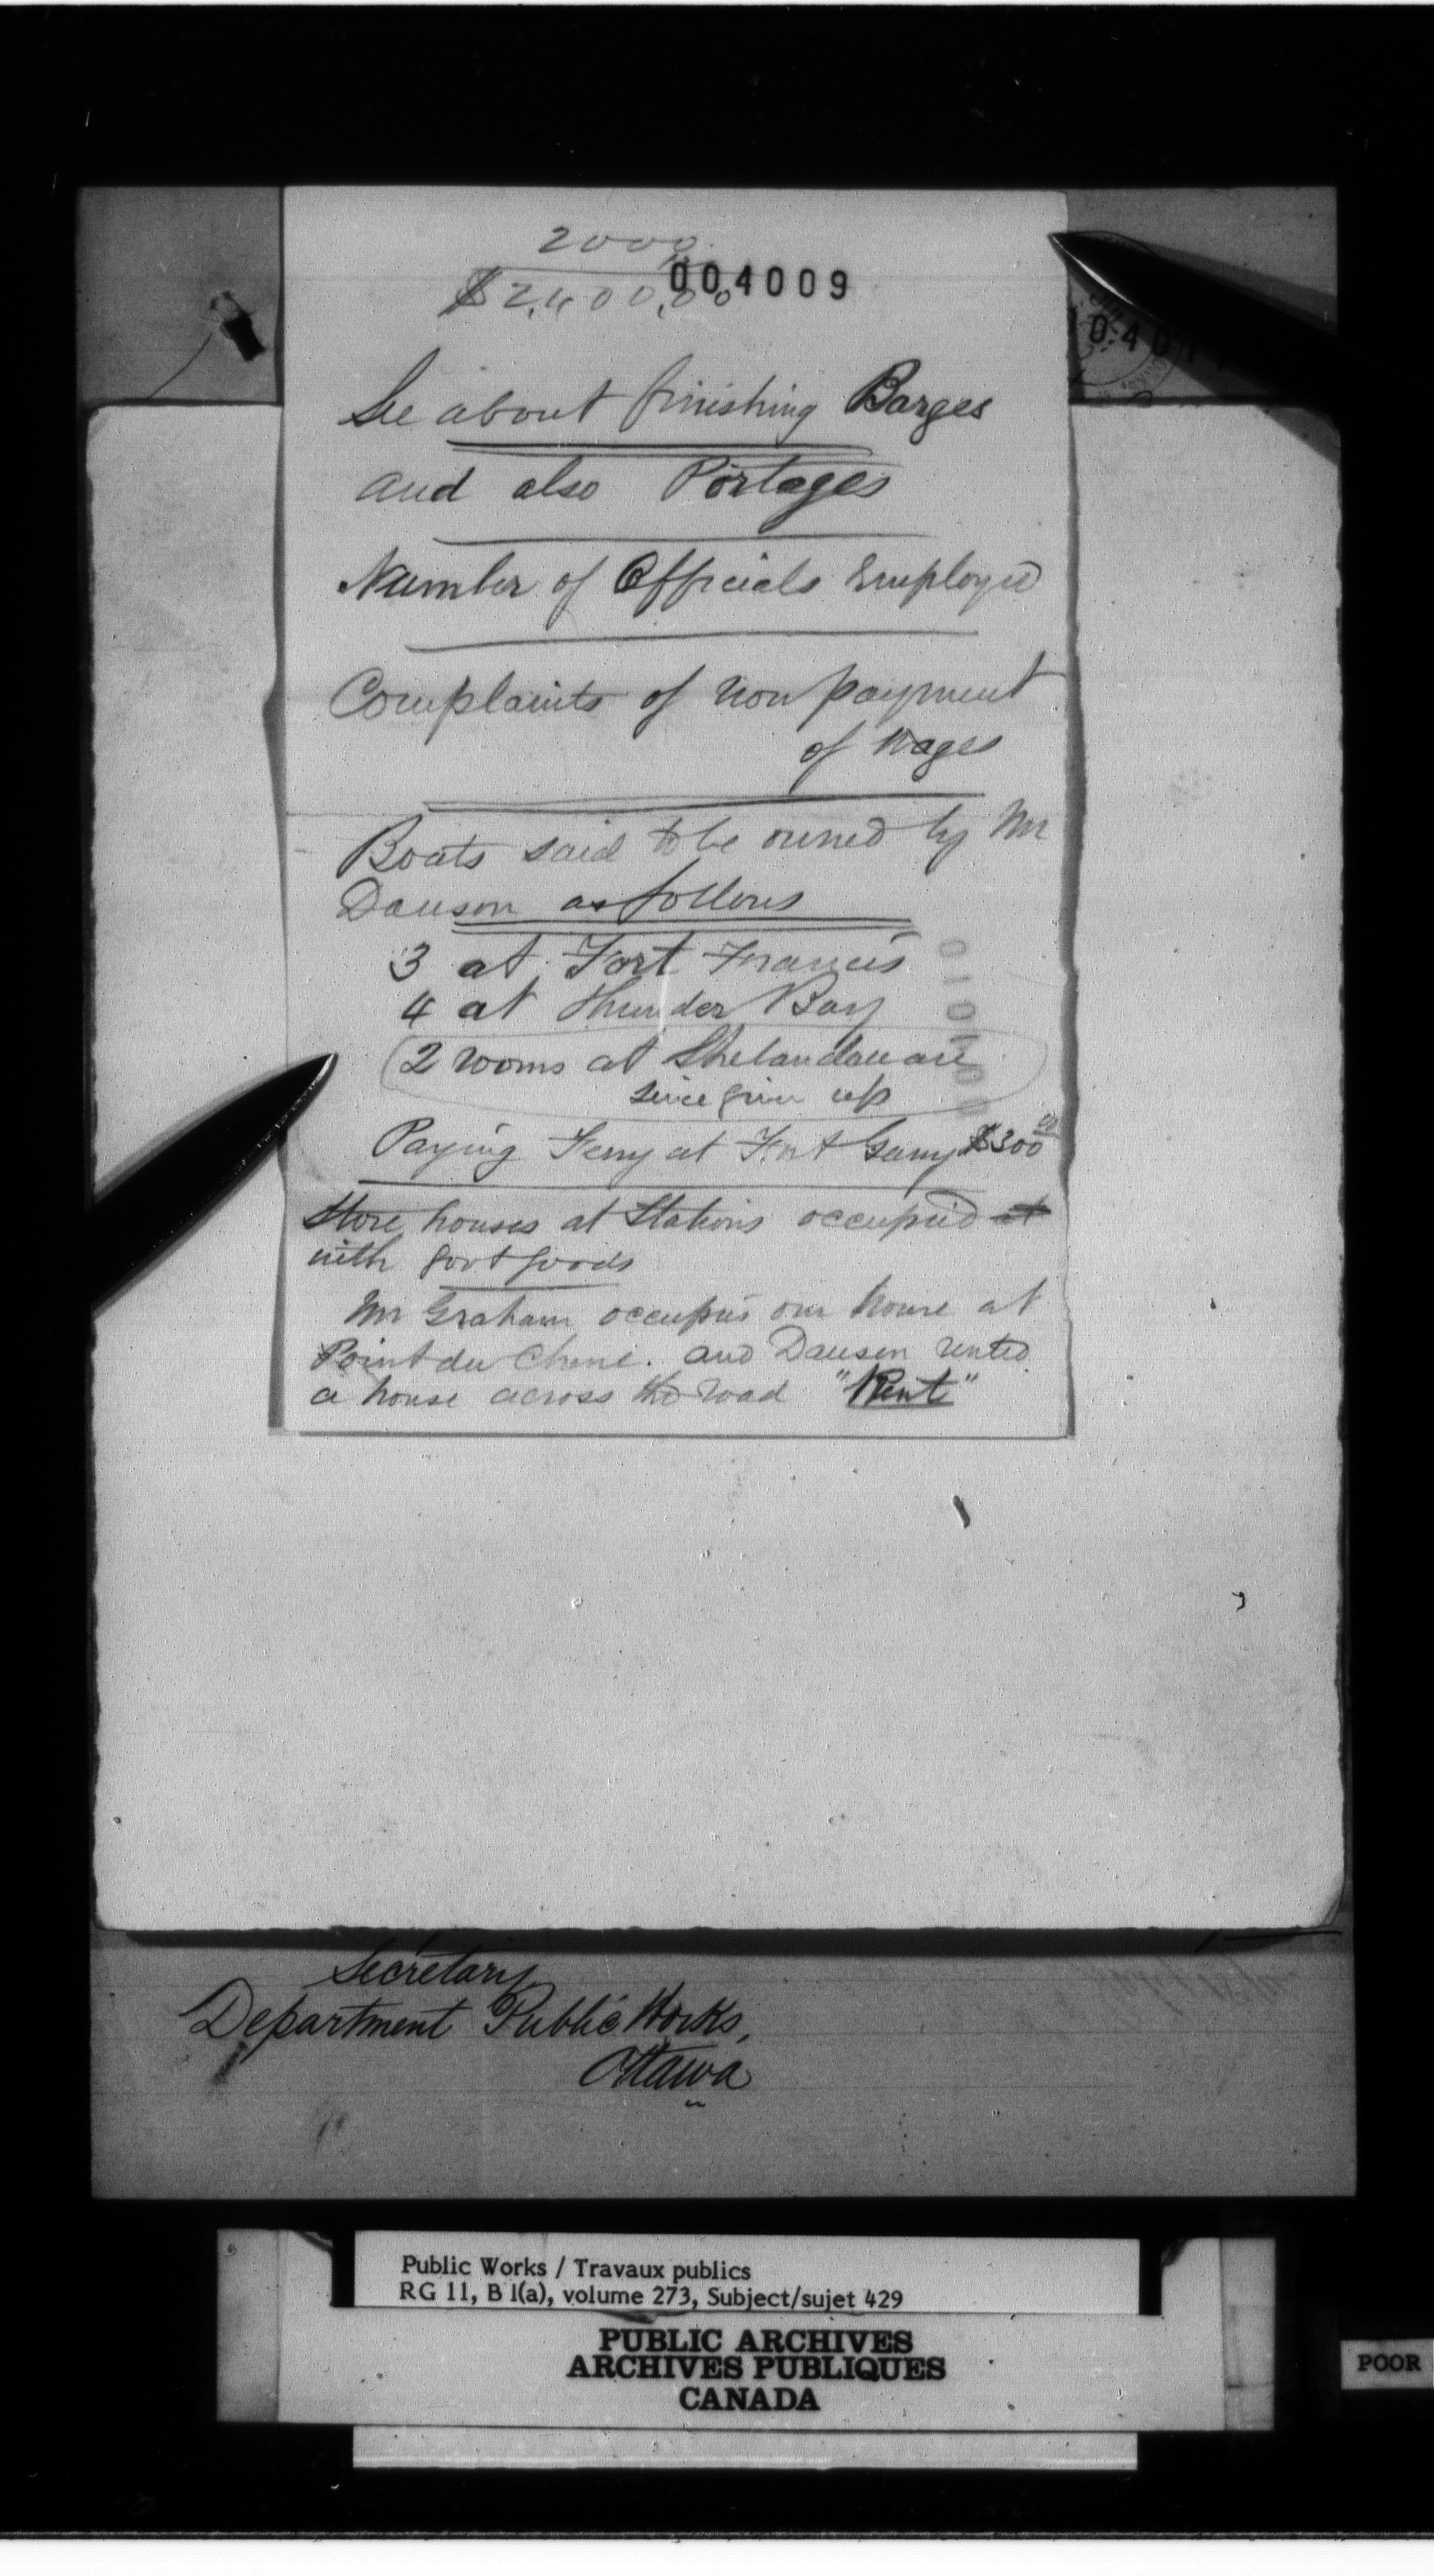 2000
$2,400,00
004009
See about finishing Barges
and also Portages
Number of Officials Employed
Complaints of non payment
of Wages
Boats said to be owned by Mr
Dawson as follows
3 at Fort Francis
4 at Thunder Bay
2 rooms at Shebandowan
since given up
Paying Ferry at Fort Garry $300 00
Store houses at Stations occupied at
with Govt goods
Mr Graham occupies our house at
Point du Chene. and Dawson rented
a house across the road "Rent"
Secretary
Department Public Works,
Ottawa
Public Works / Travaux publics
RG 11, B 1(a), volume 273, Subject/sujet 429
PUBLIC ARCHIVES
ARCHIVES PUBLIQUES
CANADA
POOR